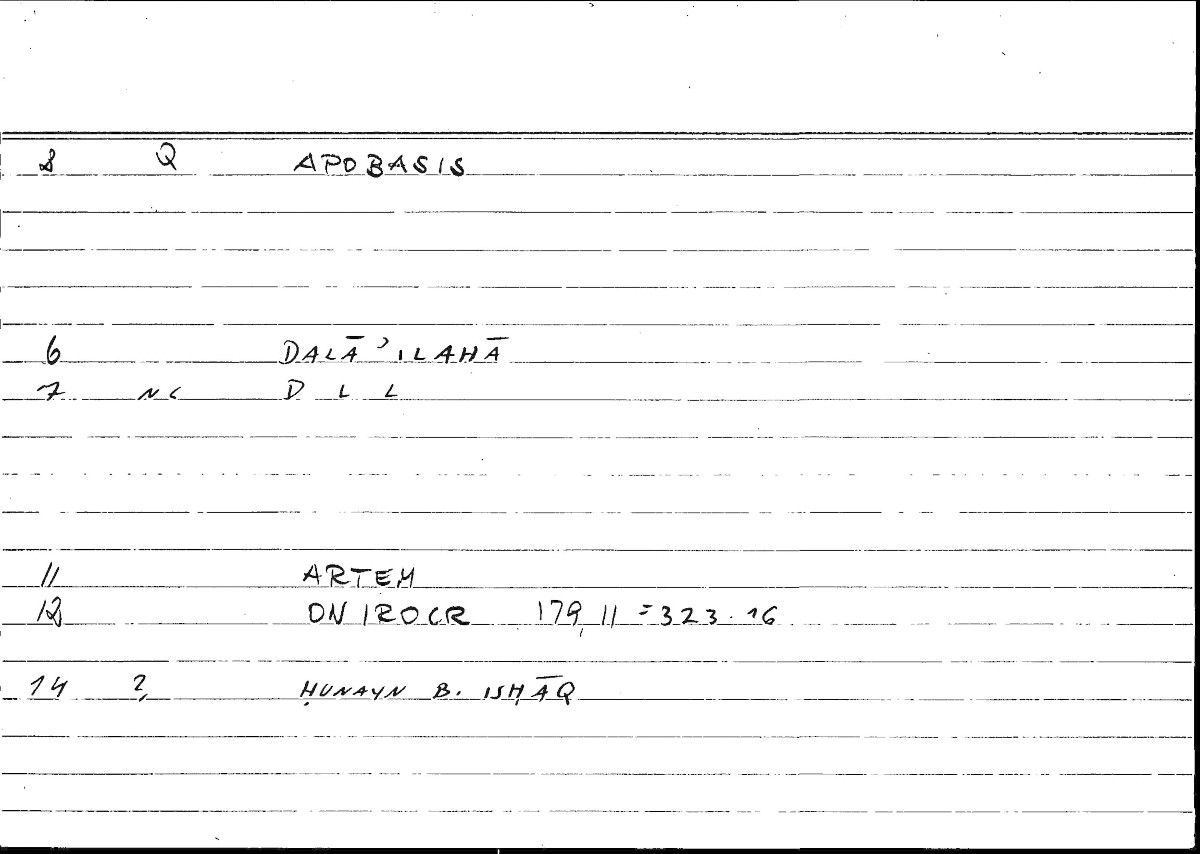 8 Q APOBASIS
6 DALĀ ʾILAHĀ
7 NC D L L
11 ARTEM
12 ONIROCR 179,11 = 323.16
14 2, ḤUNAYN B. ISḤĀQ